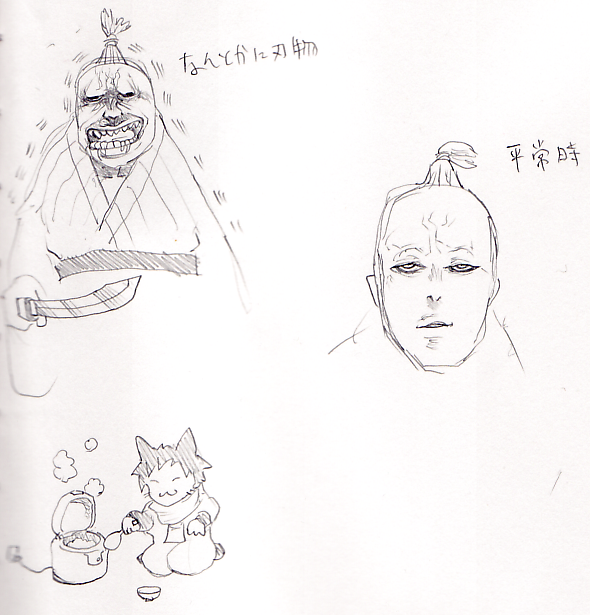 なんとかに刃物
平常時